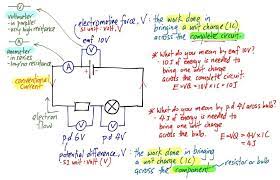 voltmeter
- in parallel
- very high resistance
ammeter
- in series
- low/no resistance
electromotive force, V : the work done in
SI unit - volt, V
bringing a unit charge (1C)
across the complete circuit.
emf 10V
V
A
conventional
current
electron
flow
V
V
pd 6V
pd 4V
* What do you mean by emf 10V?
- 10J of energy is needed to
bring one unit charge
across the complete circuit.
E=VQ = 10V x 1C = 10J
* What do you mean by p.d 4V across bulb?
- 4J of energy is needed to
bring one unit charge
across the bulb.
E=VQ = 4V x 1C = 4J
potential difference, V : the work done in bringing
SI unit - volt (V)
a unit charge (1C)
across the component.
resistor or bulb